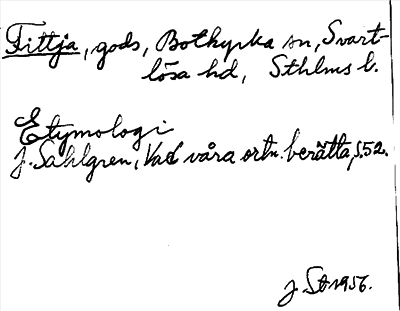 Fittja, gods, Bothyrka sn, Svart-
lösa hd, Sthlms l.
Etymologi
J. Sahlgren, Vad våra ortn. berätta, s. 52.
J. St 1956.